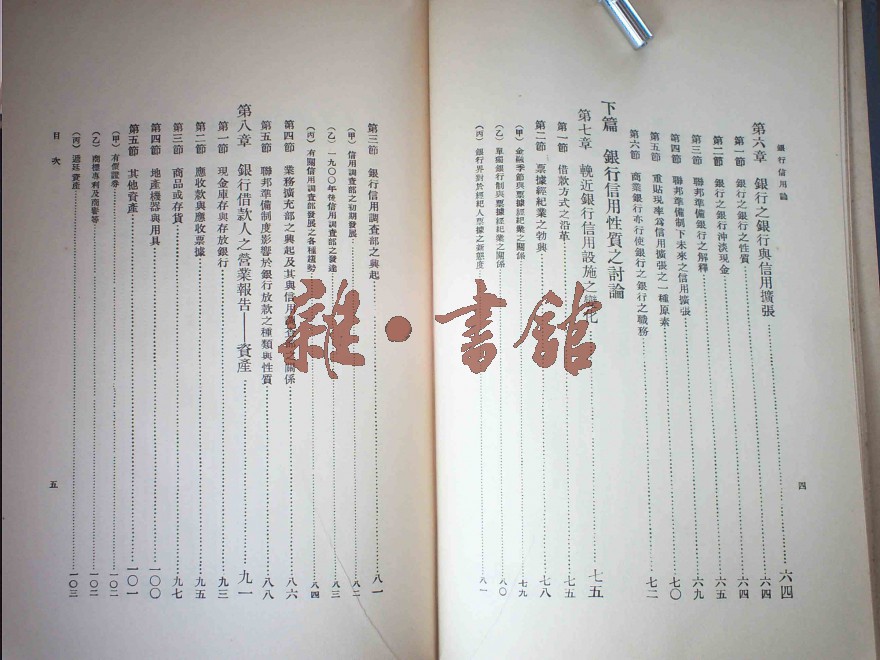 銀行信用論
第六章 銀行之銀行與信用擴張 六四
第一節 銀行之銀行之性質 六四
第二節 銀行之銀行神淡現金 六五
第三節 聯邦準備銀行之解釋 六九
第四節 聯邦準備制下未來之信用擴張 七〇
第五節 重貼現率為信用擴張之一種原素
第六節 商業銀行亦行使銀行之銀行之職務 七二
下篇 銀行信用性質之討論
第七章 輓近銀行信用設施之變化 七五
第一節 借款方式之沿革 七五
第二節 票據經紀業之勃興 七八
(甲)金融季節與票據經紀業之關係 七九
(乙)單獨銀行制與票據經紀業之關係 八〇
(丙)銀行界對於經紀人票據之新態度 八一
四
第三節 銀行信用調查部之興起 八一
(甲)信用調查部之初期發展 八二
(乙)一九〇〇年後信用調查部之發達 八三
(丙)有關信用調查部發展之各種趨勢 八四
第四節 業務擴充部之興起及其與信用調查部之關係 八六
第五節 聯邦準備制度影響於銀行放款之種類與性質 八八
第八章 銀行借款人之營業報告——資產 九一
第一節 現金庫存與存放銀行 九三
第二節 應收款與應收票據 九五
第三節 商品或存貨 九七
第四節 地產機器與用具 一〇〇
第五節 其他資產 一〇一
(甲)有價證券 一〇二
(乙)商標專利及商譽等 一〇二
(丙)遞延資產 一〇三
目次
五
雜•書館